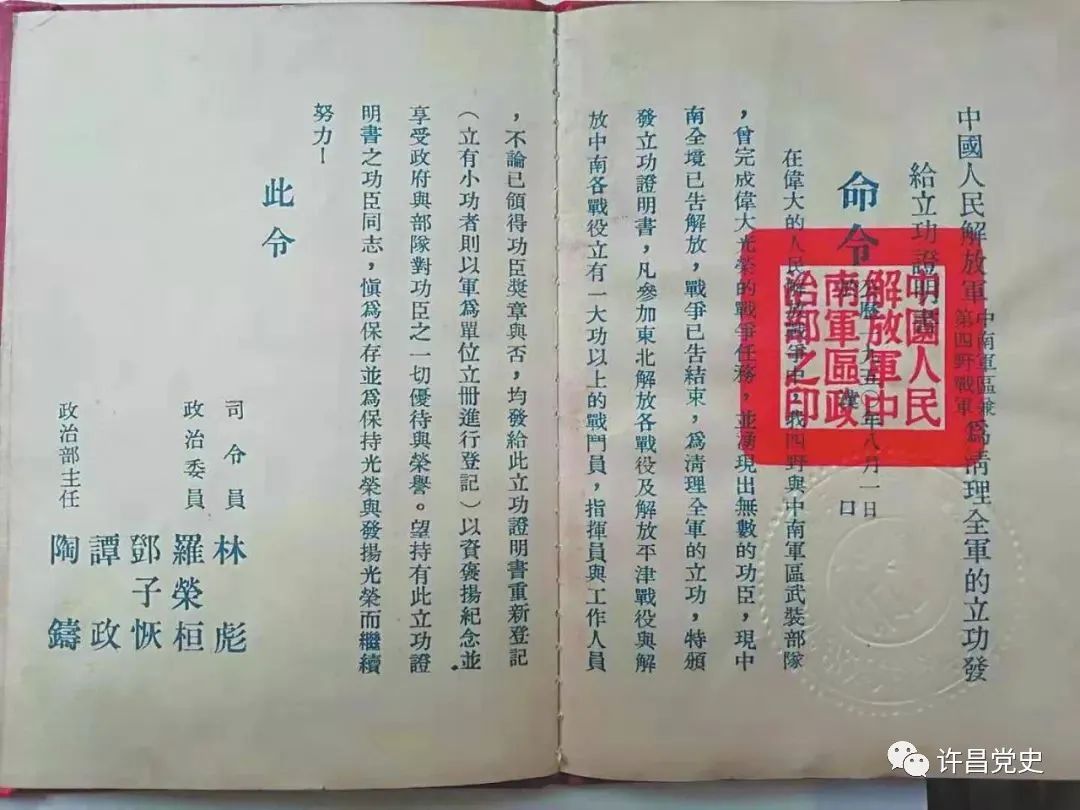 中國人民解放軍中南軍區兼第四野戰軍為淸理全軍的立功發
給立功證明書
命令
公曆一九五〇年八月一日
在偉大的人民解放戰爭中，我四野與中南軍區武裝部隊
，曾完成偉大光榮的戰爭任務，並湧現出無數的功臣，現中
南全境已吿解放，戰爭已吿結束，為淸理全軍的立功，特頒
發立功證明書，凡參加東北解放各戰役及解放平津戰役與解
放中南各戰役立有一大功以上的戰鬥員，指揮員與工作人員
，不論已領得功臣獎章與否，均發給此立功證明書重新登記
（立有小功者則以軍為單位立冊進行登記）以資褒揚紀念並
享受政府與部隊對功臣之一切優待與榮譽。望持有此立功證
明書之功臣同志，愼為保存並為保持光榮與發揚光榮而繼續
努力！
此令
司令員 林彪
政治委員 羅榮桓
鄧子恢
譚政
政治部主任 陶鑄
中國人民
解放軍中
南軍區政
治部之印
许昌党史